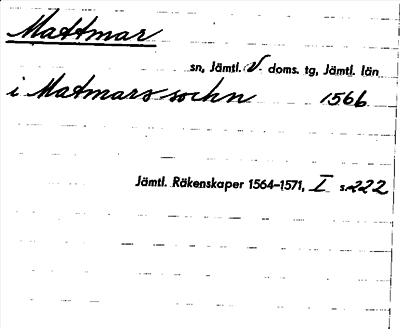 Mattmar
sn, Jämtl. V. doms. tg, Jämtl. län
i Matmars sochn 1566
Jämtl. Räkenskaper 1564–1571, I s. 222